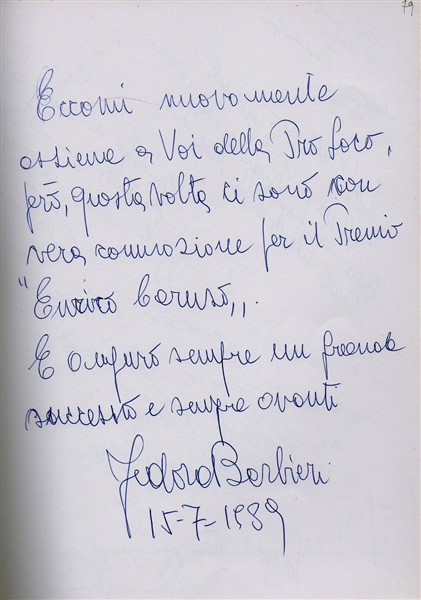 79
Eccomi nuovamente
assieme a Voi della Pro Loco,
però, questa volta ci sono con
vera commozione per il Premio
"Enrico Caruso,,.
E auguro sempre un grande
successo e sempre avanti
Fedora Barbieri
15-7-1989